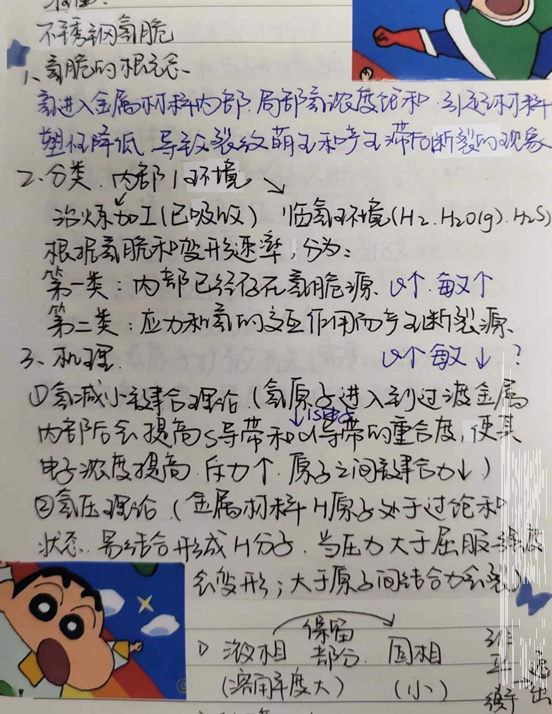 不锈钢氢脆
1、氢脆的概念、
氢进入金属材料内部,局部氢浓度饱和,引起材料
塑性降低,导致裂纹萌生和产生滞后断裂的现象
2、分类、内部/环境
冶炼加工(已吸收) 临氢环境(H2、H2O(g)、H2S)
根据氢脆和变形速率,分为:
第一类:内部已经存在氢脆源. υ↑.敏↑
第二类:应力和氢的交互作用而产生断裂源.
3、机理. υ↑敏↓ ?
①氢减小键合理论(氢原子进入到过渡金属
↓1s电子
内部后会提高s导带和d导带的重合度,使其
电子浓度提高.斥力↑.原子之间键合力↓)
②氢压理论(金属材料H原子处于过饱和
状态.易结合形成H分子.当压力大于屈服强度
会变形;大于原子间结合力会裂)
保留
液相 部分 固相
(溶解度大) (小)